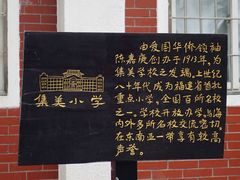 集美小学
由爱国华侨领袖
陈嘉庚创办于1913年,为
集美学校之发端,上世纪
八十年代成为福建省首批
重点小学、全国百所名校
之一。学校开放办学,与海
内外多所名校交流密切,
在东南亚一带享有较高
声誉。